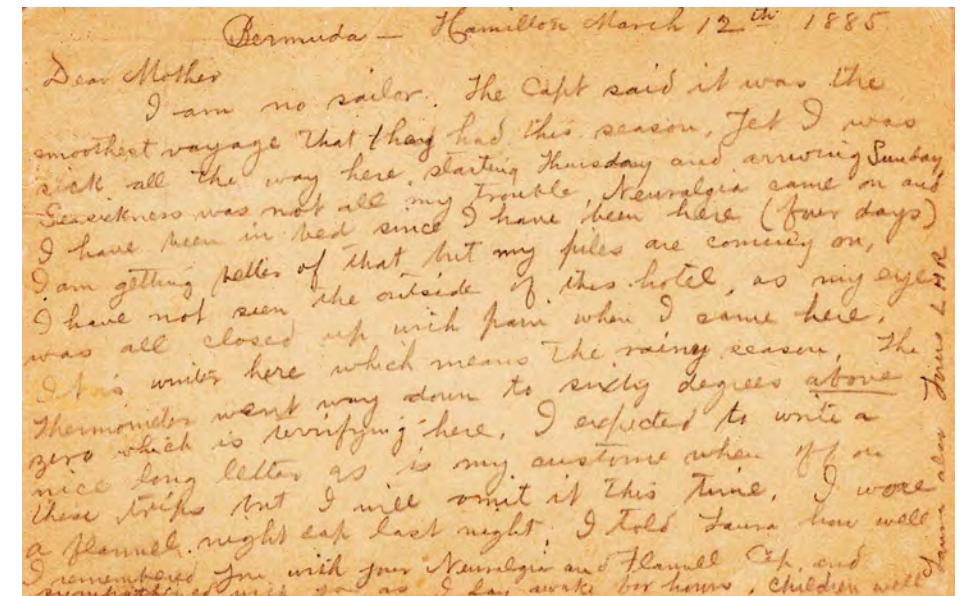 Bermuda — Hamilton March 12th 1885
Dear Mother
I am no sailor. The Capt said it was the
smoothest voyage that they had this season, Yet I was
sick all the way here, starting Thursday and arriving Sunday
Seasickness was not all my trouble, Neuralgia came on and
I have been in bed since I have been here (four days)
I am getting better of that but my piles are coming on,
I have not seen the outside of this hotel, as my eye
was all closed up with pain when I came here.
It is winter here which means the rainy season. The
Thermometer went way down to sixty degrees above
zero which is terrifying here. I expected to write a
nice long letter as is my custome when off on
these trips but I will omit it this time. I wore
a flannel night cap last night. I told Laura how well
I remembered you with your Neuralgia and Flannel Cap, and
sympathized with you as I lay awake for hours, children well
Laura also Yours LHR